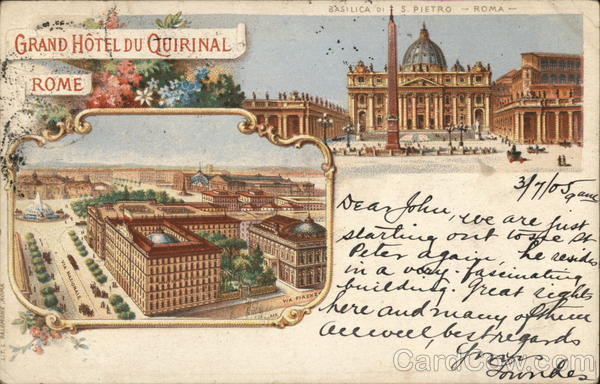 BASILICA DI S. PIETRO - ROMA -
GRAND HÔTEL DU QUIRINAL
ROME
VIA NAZIONALE
VIA FIRENZE
3/7/05
9 am
Dear John, we are just
starting out to see St
Peter again, he resides
in a very fascinating
building. Great sights
here and many of them
All well, best regards
Lowndes
CardCow.com